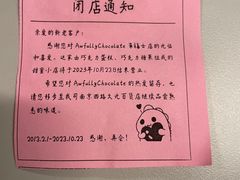 闭店通知
亲爱的新老客户:
感谢您对 AwfullyChocolate 来福士店的光临
和喜爱,这家由巧克力蛋糕、巧克力糖果组成的
甜蜜小店将于2023年10月23日结束营业。
希望您对 AwfullyChocolate 的热爱留存,也
请您移步至我司南京西路久光百货店继续品尝熟
悉的味道。
2013.2.1-2023.10.23 感谢,再会!